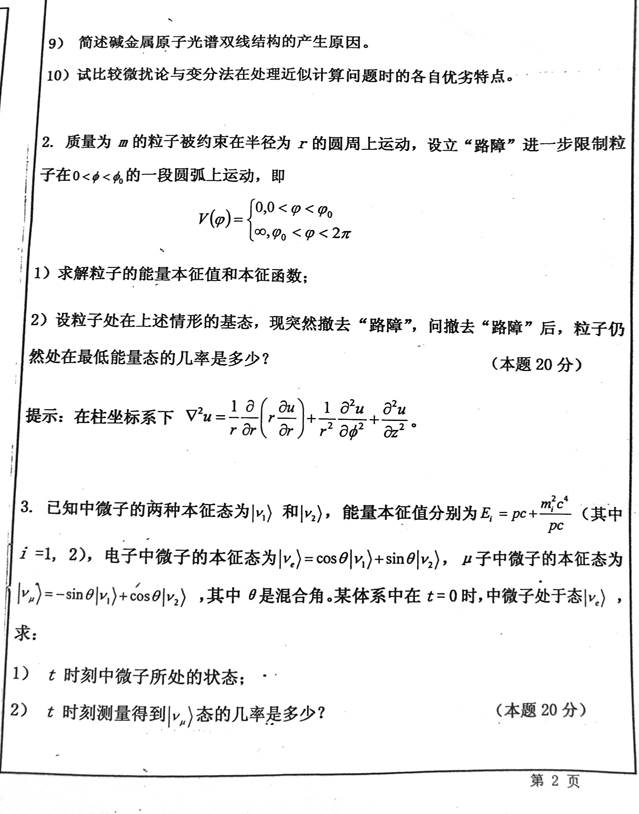 9） 简述碱金属原子光谱双线结构的产生原因。
10）试比较微扰论与变分法在处理近似计算问题时的各自优劣特点。
2. 质量为 m 的粒子被约束在半径为 r 的圆周上运动，设立“路障”进一步限制粒
子在0<ϕ<ϕ₀的一段圆弧上运动，即
V(φ)={0,0<φ<φ₀
∞,φ₀<φ<2π
1）求解粒子的能量本征值和本征函数；
2）设粒子处在上述情形的基态，现突然撤去“路障”，问撤去“路障”后，粒子仍
然处在最低能量态的几率是多少？ （本题 20 分）
提示：在柱坐标系下 ∇²u = 1/r ∂/∂r (r ∂u/∂r) + 1/r² ∂²u/∂ϕ² + ∂²u/∂z² 。
3. 已知中微子的两种本征态为|ν₁⟩ 和|ν₂⟩，能量本征值分别为 Eᵢ = pc + mᵢ²c⁴/pc （其中
i =1, 2），电子中微子的本征态为|νₑ⟩=cosθ|ν₁⟩+sinθ|ν₂⟩，μ子中微子的本征态为
|ν_μ⟩=−sinθ|ν₁⟩+cosθ|ν₂⟩ ,其中 θ是混合角。某体系中在 t=0 时,中微子处于态|νₑ⟩ ，
求：
1） t 时刻中微子所处的状态；
2） t 时刻测量得到|ν_μ⟩态的几率是多少？ （本题 20 分）
第 2 页